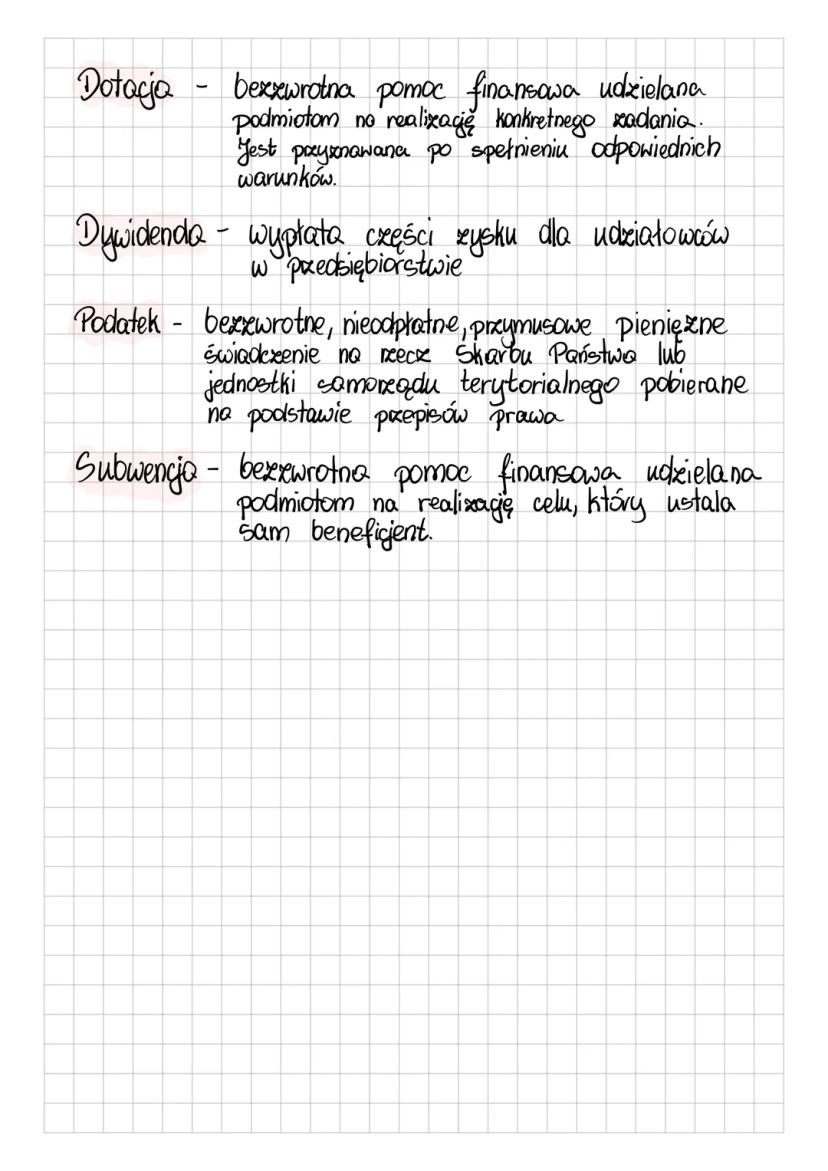 Dotacja - bezzwrotna pomoc finansowa udzielana
podmiotom na realizację konkretnego zadania.
Jest przyznawana po spełnieniu odpowiednich
warunków.
Dywidenda - wypłata części zysku dla udziałowców
w przedsiębiorstwie
Podatek - bezzwrotne, nieodpłatne, przymusowe pieniężne
świadczenie na rzecz Skarbu Państwa lub
jednostki samorządu terytorialnego pobierane
na podstawie przepisów prawa
Subwencja - bezzwrotna pomoc finansowa udzielana
podmiotom na realizację celu, który ustala
sam beneficjent.